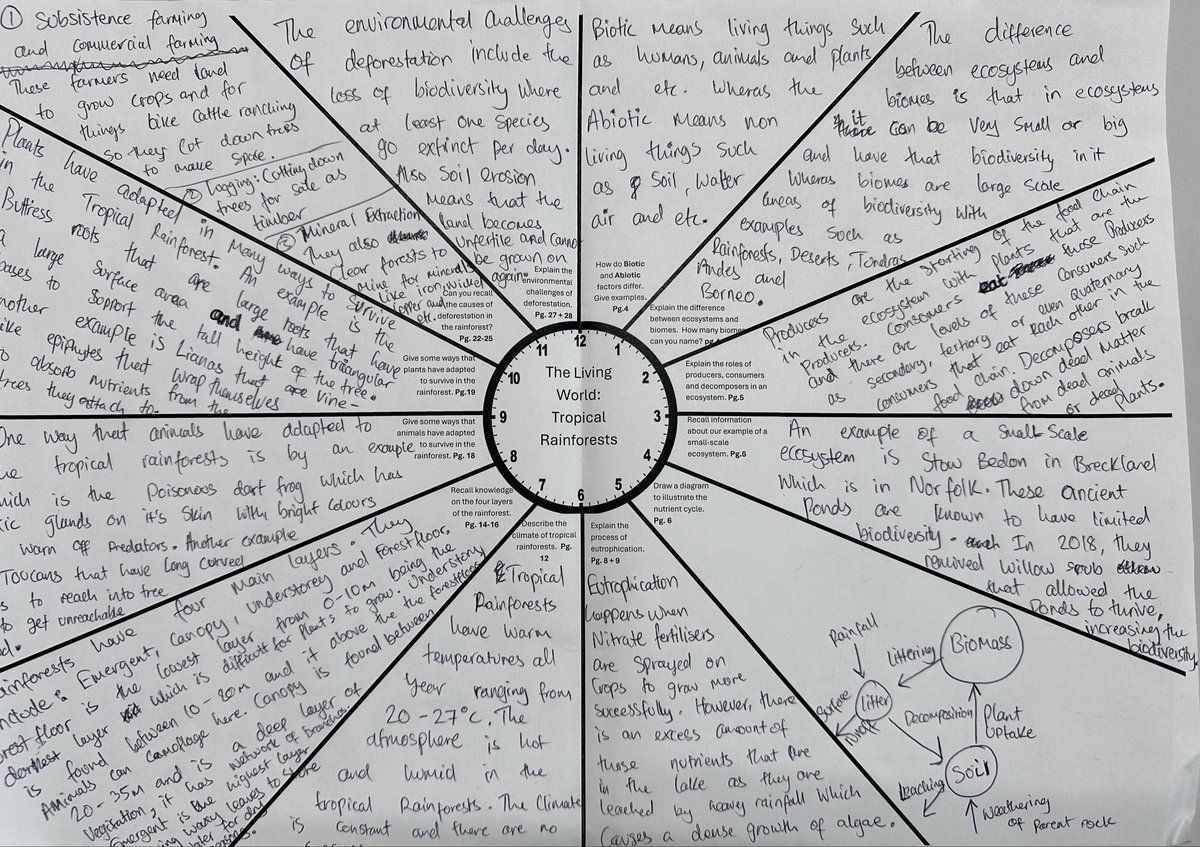 The Living
World:
Tropical
Rainforests
12
1
2
3
4
5
6
7
8
9
10
11
How do Biotic
and Abiotic
factors differ.
Give examples.
Pg.4
Biotic means living things such
as humans, animals and plants
and etc. Wheras the
Abiotic means non
living things such
as Soil, Water
air and etc.
Explain the difference
between ecosystems and
biomes. How many biomes
can you name? pg.4
The difference
between ecosystems and
biomes is that in ecosystems
it can be very small or big
and have that biodiversity in it
Wheras biomes are large scale
areas of biodiversity with
examples such as
Rainforests, Deserts, Tondras
Andes and
Borneo.
Explain the roles of
producers, consumers
and decomposers in an
ecosystem. Pg.5
Producers are the starting of the food chain
in the ecosystem with plants that are the
Producers. Consumers eat those Producers
and there are levels of these consumers such
as secondary, tertiary or even quaternary
consumers that eat each other in the
food chain. Decomposers break
down dead matter
from dead animals
or dead plants.
Recall information
about our example of a
small-scale
ecosystem. Pg.6
An example of a Small Scale
ecosystem is Stow Bedon in Breckland
Which is in Norfolk. These ancient
Ponds are known to have limited
biodiversity. In 2018, they
removed willow scrub
that allowed the
Ponds to thrive,
increasing the
biodiversity
Draw a diagram
to illustrate the
nutrient cycle.
Pg. 6
Rainfall
Littering
Biomass
litter
Surface
runoff
Decomposition
Plant
uptake
Soil
Leaching
Weathering
of Parent rock
Explain the
process of
eutrophication.
Pg. 8 + 9
Eutrophication
happens when
Nitrate fertilisers
are sprayed on
Crops to grow more
sucessfully. However, there
is an excess amount of
those nutrients that are
in the lake as they are
leached by heavy rainfall which
Causes a dense growth of algae.
Describe the
climate of tropical
rainforests. Pg.
12
Tropical
Rainforests
have warm
temperatures all
Year ranging from
20-27°C. The
atmosphere is hot
and humid in the
tropical Rainforests. The Climate
is constant and there are no
Recall knowledge
on the four layers
of the rainforest.
Pg. 14-16
ainforests have four main layers. They
include: Emergent, Canopy, understorey and Forest floor.
orest floor is the lowest layer from 0-10m being the
darkest layer which is difficult for Plants to grow. Understory
is found between 10-20m and it above the the forest floor
Animals can camoflage here. Canopy is found between
20-35m and is a deep layer of
Vegitation, it has network of branches.
Emergent is the highest layer
ing waxy leaves to store
water for dry
seasons.
Give some ways that
animals have adapted
to survive in the
rainforest. Pg. 18
One way that animals have adapted to
he tropical rainforests is by an example
which is the Poisonous dart frog which has
ic glands on it's skin with bright colours
warn off predators. Another example
Toucans that have long curved
s to reach into tree
to get unreachable
Give some ways that
plants have adapted
to survive in the
rainforest. Pg.19
Plants have adapted in many ways to survive
in the Tropical Rainforest. An example is the
Buttress roots that are large roots that have
a large surface area and have triangular
bases to support the tall height of the tree.
nother example is Lianas that are vine-
like epiphytes that wrap themselves
to absorb nutrients from the
trees they attach to.
Can you recall
the causes of
deforestation in
the rainforest?
Pg. 22-25
① Sobsistence farming
and commercial farming
These farmers need land
to grow crops and for
things like cattle ranching
so they cut down trees
to make space.
② Logging: Cutting down
trees for sale as
timber
③ Mineral Extraction
They also
Clear forests to
mine for minerals
like iron, nickel
copper and
etc.
Explain the
environmental
challenges of
deforestation.
Pg. 27 + 28
The environmental challenges
Of deforestation include the
loss of biodiversity where
at least one species
go extinct per day.
Also Soil erosion
means that the
land becomes
unfertile and cannot
be grown on
again.